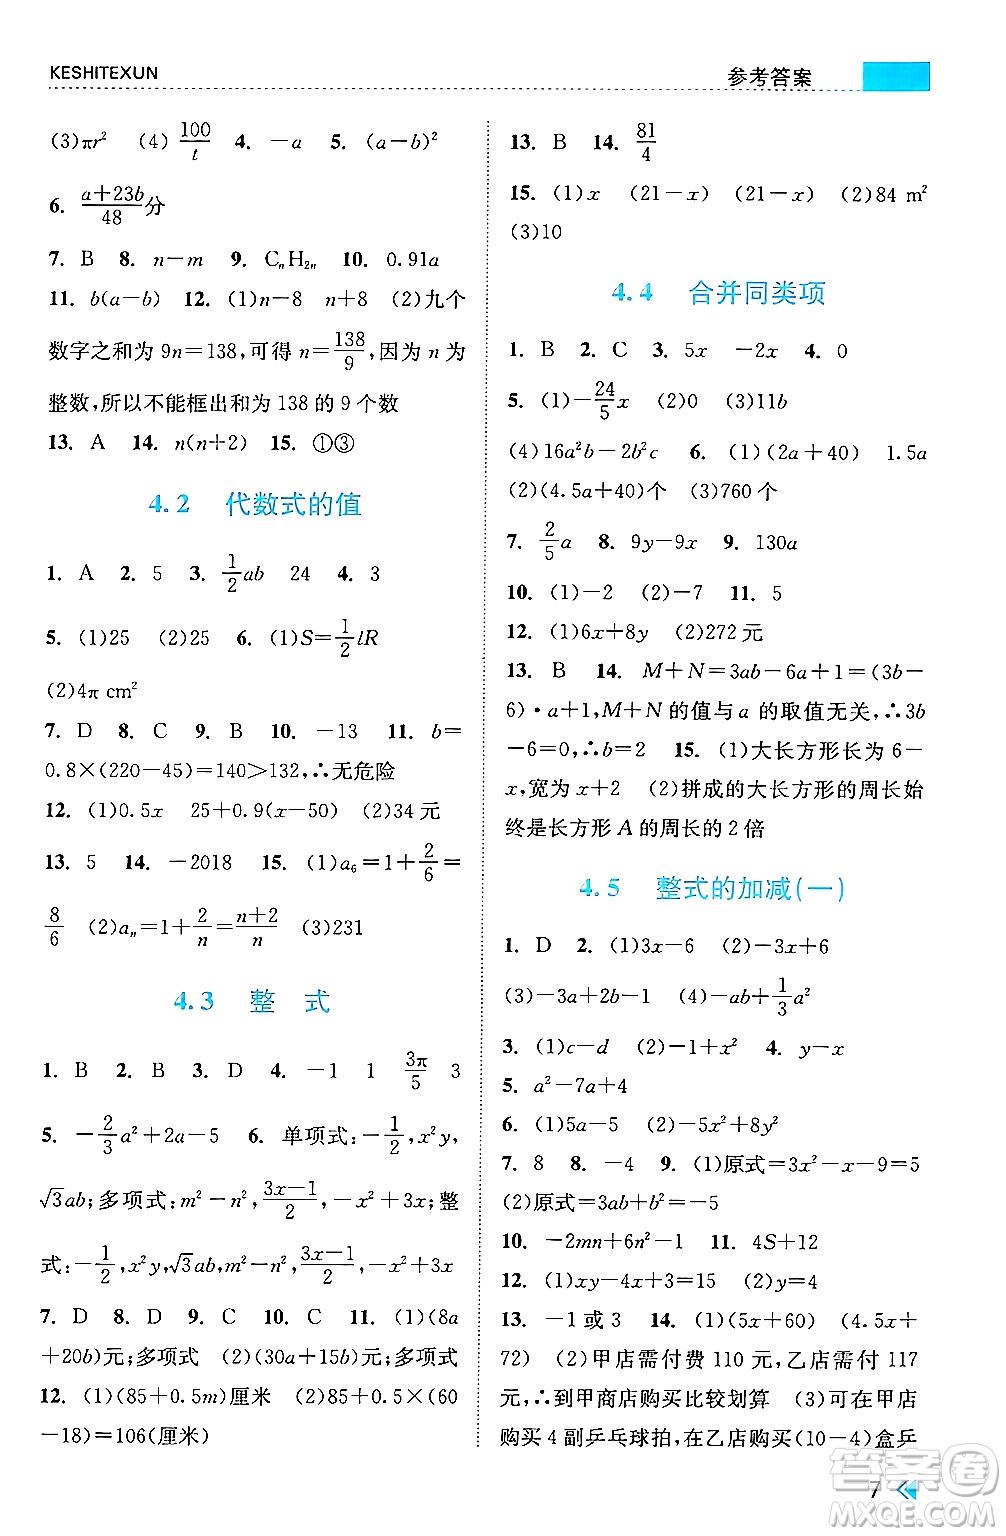 KESHITEXUN
参考答案
(3)πr² (4) 100/t 4. -a 5. (a-b)²
6. (a+23b)/48分
7. B 8. n-m 9. CₙH₂ₙ 10. 0.91a
11. b(a-b) 12. (1)n-8 n+8 (2)九个
数字之和为 9n=138,可得 n=138/9,因为 n 为
整数,所以不能框出和为 138 的 9 个数
13. A 14. n(n+2) 15. ①③
4.2 代数式的值
1. A 2. 5 3. 1/2ab 24 4. 3
5. (1)25 (2)25 6. (1)S=1/2lR
(2)4π cm²
7. D 8. C 9. D 10. -13 11. b=
0.8×(220-45)=140>132,∴无危险
12. (1)0.5x 25+0.9(x-50) (2)34元
13. 5 14. -2018 15. (1)a₆=1+2/6=
8/6 (2)aₙ=1+2/n=(n+2)/n (3)231
4.3 整 式
1. B 2. B 3. D 4. -1 1 3π/5 3
5. -2/3a²+2a-5 6. 单项式:-1/2,x²y,
√3ab;多项式:m²-n²,(3x-1)/2,x²+3x;整
式:-1/2,x²y,√3ab,m²-n²,(3x-1)/2,x²+3x
7. D 8. D 9. C 10. C 11. (1)(8a
+20b)元;多项式 (2)(30a+15b)元;多项式
12. (1)(85+0.5m)厘米 (2)85+0.5×(60
-18)=106(厘米)
13. B 14. 81/4
15. (1)x (21-x) (21-x) (2)84 m²
(3)10
4.4 合并同类项
1. B 2. C 3. 5x -2x 4. 0
5. (1)-24/5x (2)0 (3)11b
(4)16a²b-2b²c 6. (1)(2a+40) 1.5a
(2)(4.5a+40)个 (3)760个
7. 2/5a 8. 9y-9x 9. 130a
10. (1)-2 (2)-7 11. 5
12. (1)6x+8y (2)272元
13. B 14. M+N=3ab-6a+1=(3b-
6)·a+1,M+N的值与a的取值无关,∴3b
-6=0,∴b=2 15. (1)大长方形长为6-
x,宽为x+2 (2)拼成的大长方形的周长始
终是长方形A的周长的2倍
4.5 整式的加减(一)
1. D 2. (1)3x-6 (2)-3x+6
(3)-3a+2b-1 (4)-ab+1/3a²
3. (1)c-d (2)-1+x² 4. y-x
5. a²-7a+4
6. (1)5a-5 (2)-5x²+8y²
7. 8 8. -4 9. (1)原式=3x²-x-9=5
(2)原式=3ab+b²=-5
10. -2mn+6n²-1 11. 4S+12
12. (1)xy-4x+3 (2)y=4
13. -1或3 14. (1)(5x+60) (4.5x+
72) (2)甲店需付费110元,乙店需付117
元,∴到甲商店购买比较划算 (3)可在甲店
购买4副乒乓球拍,在乙店购买(10-4)盒乒
7
答案圈
MXQE.COM